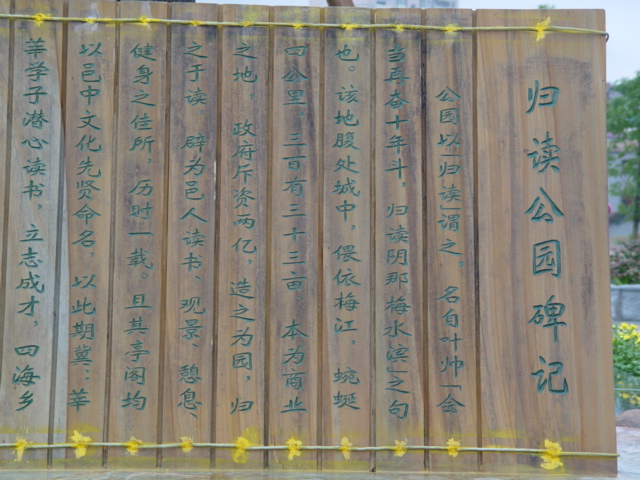 归读公园碑记
公园以「归读」谓之，名自叶帅「会
当再奋十年斗，归读阴那梅水滨」之句
也。该地腹处城中，偎依梅江，蜿蜒
四公里，三百有三十三亩。本为商业
之地，政府斥资两亿，造之为园，归
之于读，辟为邑人读书、观景、憩息、
健身之佳所，历时一载。且其亭阁均
以邑中文化先贤命名，以此期冀：莘
莘学子潜心读书，立志成才，四海乡